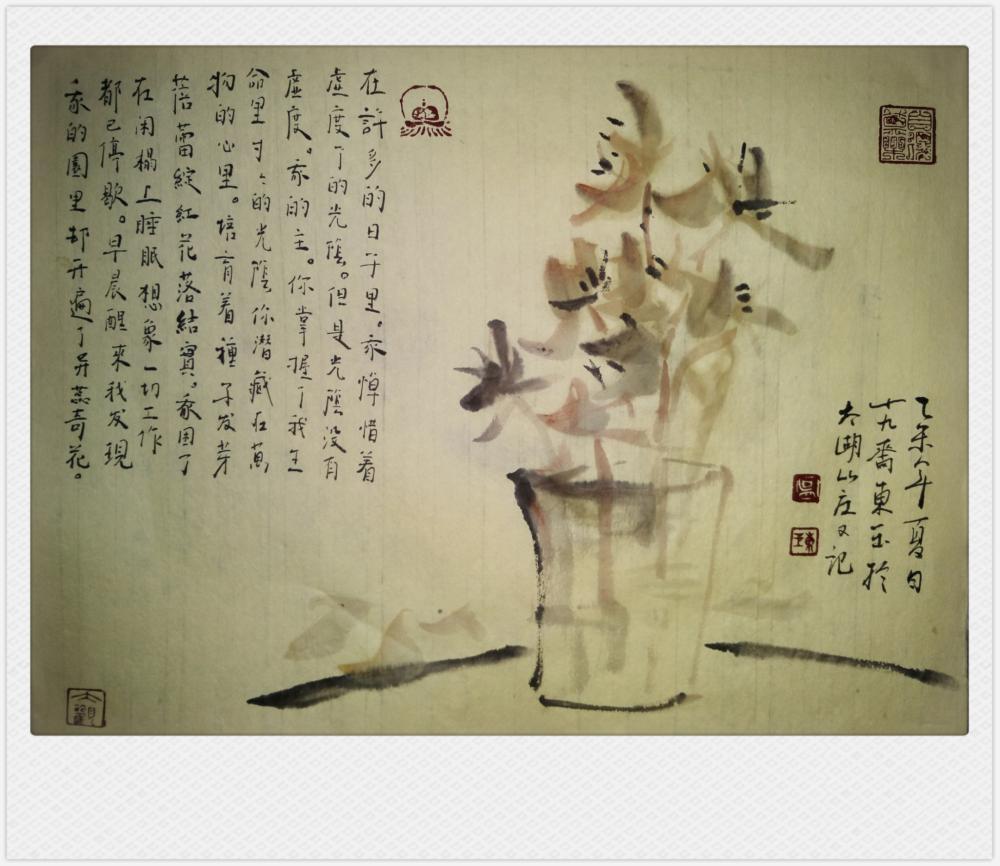 年夏日
廿九齋東玉於
太湖山庄又記
在許多的日子里。我悼惜着
虚度了的光陰。但是光陰没有
虚度。我的主。你掌握了我生
命里寸〻的光陰你潜藏在萬
物的心里。培育着種子发芽
蓓蕾綻紅花落結實。我困了
在闲榻上睡眠想象一切工作
都已停歇。早晨醒來我发現
我的園里却开遍了异蕊奇花。
大觀